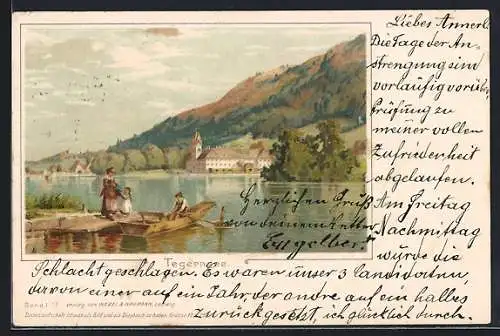 Liebes Annerl.
Die Tage der An-
strengung sind
vorläufig vorüber
Prüfung zu
meiner vollen
Zufriedenheit
abgelaufen.
Am Freitag
Nachmittag
wurde die
Schlacht geschlagen. Es waren unser 3 Candidaten,
davon einer auf ein Jahr, der andre auf ein halbes
zurückgesetzt, ich glücklich durch.
Herzlichen Gruß
von deinem Vetter
Engelbert
Tegernsee
Band I
Verlag von MEISSL & NAUMANN, Leipzig